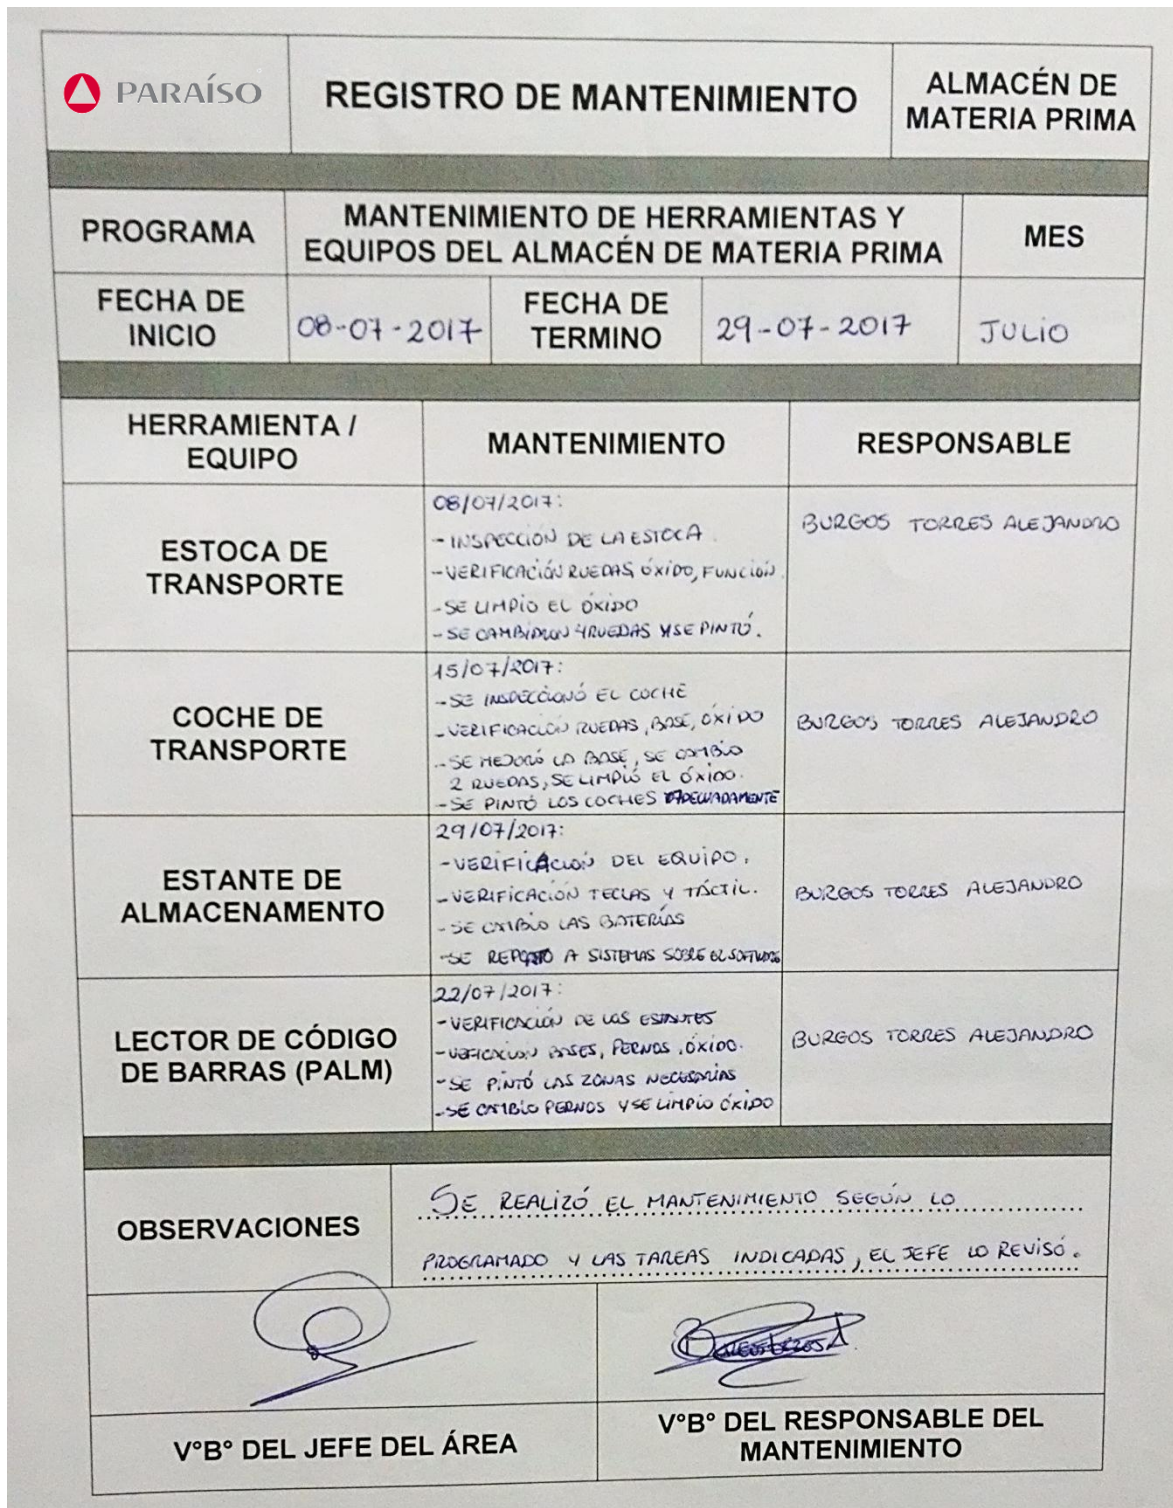 PARAÍSO
REGISTRO DE MANTENIMIENTO
ALMACÉN DE
MATERIA PRIMA
PROGRAMA
MANTENIMIENTO DE HERRAMIENTAS Y
EQUIPOS DEL ALMACÉN DE MATERIA PRIMA
MES
FECHA DE
INICIO
08-07-2017
FECHA DE
TERMINO
29-07-2017
JULIO
HERRAMIENTA /
EQUIPO
MANTENIMIENTO
RESPONSABLE
ESTOCA DE
TRANSPORTE
08/07/2017:
- INSPECCIÓN DE LA ESTOCA.
- VERIFICACIÓN RUEDAS, ÓXIDO, FUNCIÓN.
- SE LIMPIO EL ÓXIDO
- SE CAMBIARON 4 RUEDAS Y SE PINTÓ.
BURGOS TORRES ALEJANDRO
COCHE DE
TRANSPORTE
15/07/2017:
- SE INSPECCIONÓ EL COCHE
- VERIFICACIÓN RUEDAS, BASE, ÓXIDO
- SE MEJORÓ LA BASE, SE CAMBIO
2 RUEDAS, SE LIMPIÓ EL ÓXIDO.
- SE PINTÓ LOS COCHES ADECUADAMENTE
BURGOS TORRES ALEJANDRO
ESTANTE DE
ALMACENAMENTO
29/07/2017:
- VERIFICACIÓN DEL EQUIPO.
- VERIFICACIÓN TECLAS Y TÁCTIL.
- SE CAMBIO LAS BATERÍAS
- SE REPORTO A SISTEMAS SOBRE EL SOFTWARE
BURGOS TORRES ALEJANDRO
LECTOR DE CÓDIGO
DE BARRAS (PALM)
22/07/2017:
- VERIFICACIÓN DE LOS ESTANTES
- BASES, PERNOS, ÓXIDO.
- SE PINTÓ LAS ZONAS NECESARIAS
- SE CAMBIO PERNOS Y SE LIMPIO ÓXIDO
BURGOS TORRES ALEJANDRO
OBSERVACIONES
SE REALIZÓ EL MANTENIMIENTO SEGÚN LO
PROGRAMADO Y LAS TAREAS INDICADAS, EL JEFE LO REVISÓ.
V°B° DEL JEFE DEL ÁREA
V°B° DEL RESPONSABLE DEL
MANTENIMIENTO